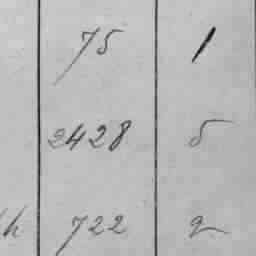 75 1
2428 5
h 722 2